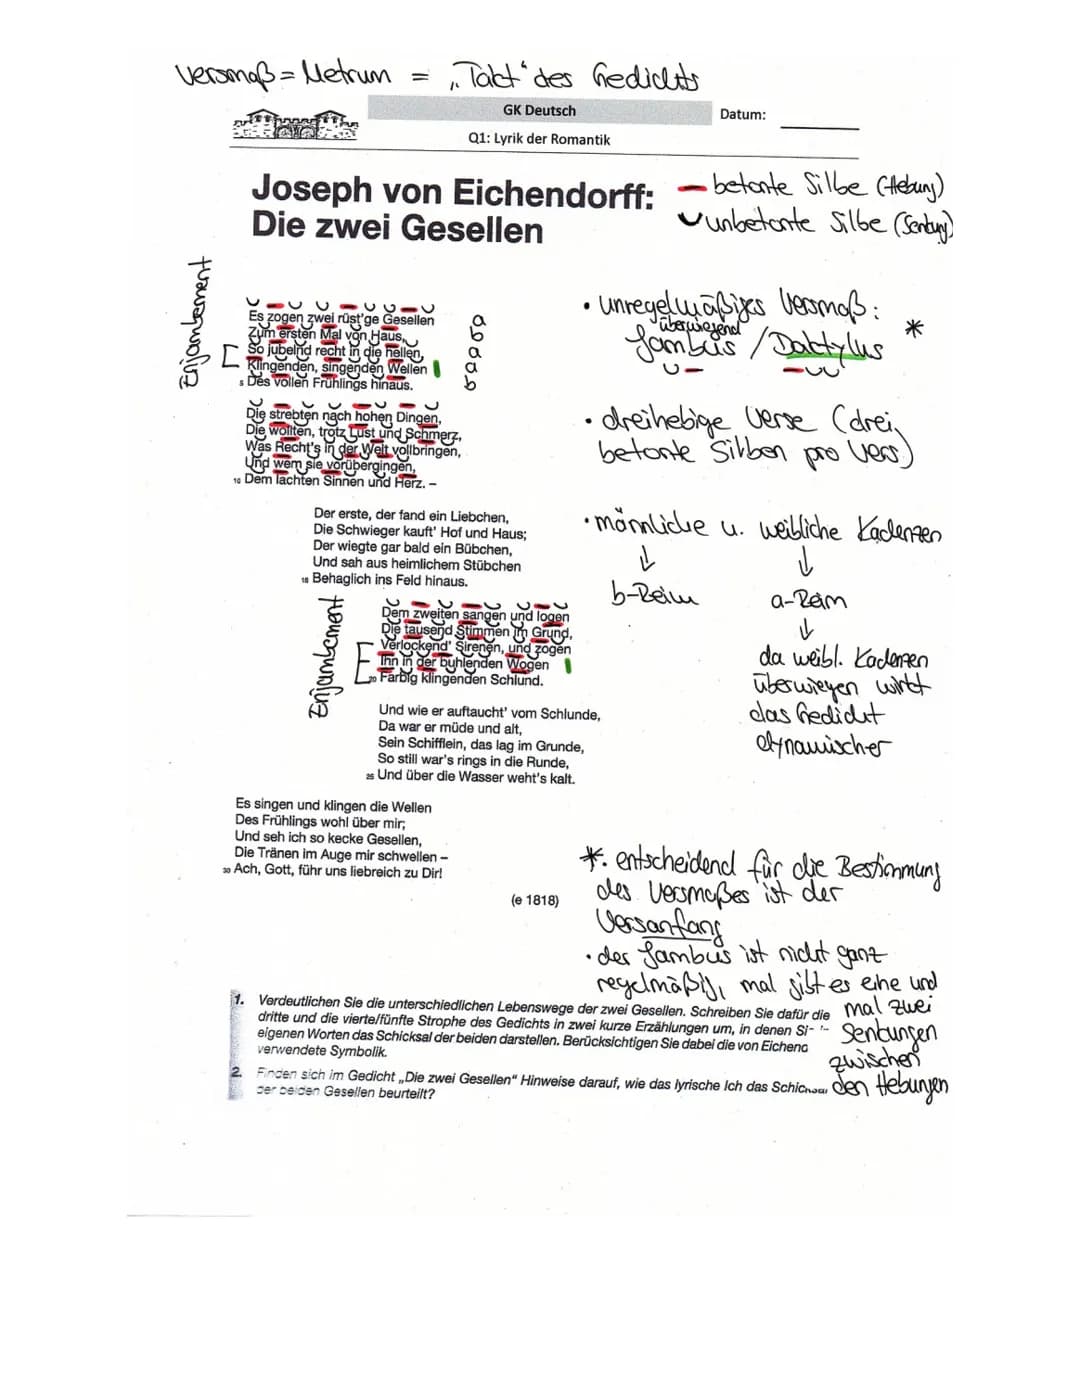 Versmaß = Metrum = „Takt“ des Gedichts
GK Deutsch
Datum:
Q1: Lyrik der Romantik
Joseph von Eichendorff:
Die zwei Gesellen
betonte Silbe (Hebung)
unbetonte Silbe (Senkung)
Enjambement
Es zogen zwei rüst'ge Gesellen
Zum ersten Mal von Haus,
So jubelnd recht in die hellen,
Klingenden, singenden Wellen
5 Des vollen Frühlings hinaus.
a
b
a
a
b
Die strebten nach hohen Dingen,
Die wollten, trotz Lust und Schmerz,
Was Recht's in der Welt vollbringen,
Und wem sie vorübergingen,
10 Dem lachten Sinnen und Herz. –
Der erste, der fand ein Liebchen,
Die Schwieger kauft' Hof und Haus;
Der wiegte gar bald ein Bübchen,
Und sah aus heimlichem Stübchen
15 Behaglich ins Feld hinaus.
Enjambement
Dem zweiten sangen und logen
Die tausend Stimmen im Grund,
Verlockend' Sirenen, und zogen
Ihn in der buhlenden Wogen
20 Farbig klingenden Schlund.
Und wie er auftaucht' vom Schlunde,
Da war er müde und alt,
Sein Schifflein, das lag im Grunde,
So still war's rings in die Runde,
25 Und über die Wasser weht's kalt.
Es singen und klingen die Wellen
Des Frühlings wohl über mir;
Und seh ich so kecke Gesellen,
Die Tränen im Auge mir schwellen –
30 Ach, Gott, führ uns liebreich zu Dir!
(e 1818)
• unregelmäßiges Versmaß:
überwiegend
Jambus / Daktylus *
• dreihebige Verse (drei
betonte Silben pro Vers)
• männliche u. weibliche Kadenzen
↓ ↓
b-Reim a-Reim
↓
da weibl. Kadenzen
überwiegen wirkt
das Gedicht
dynamischer
*• entscheidend für die Bestimmung
des Versmaßes ist der
Versanfang
• der Jambus ist nicht ganz
regelmäßig, mal gibt es eine und
mal zwei
Senkungen
zwischen
den Hebungen
1. Verdeutlichen Sie die unterschiedlichen Lebenswege der zwei Gesellen. Schreiben Sie dafür die
dritte und die vierte/fünfte Strophe des Gedichts in zwei kurze Erzählungen um, in denen Si-
eigenen Worten das Schicksal der beiden darstellen. Berücksichtigen Sie dabei die von Eichend
verwendete Symbolik.
2. Finden sich im Gedicht „Die zwei Gesellen“ Hinweise darauf, wie das lyrische Ich das Schicksal
der beiden Gesellen beurteilt?